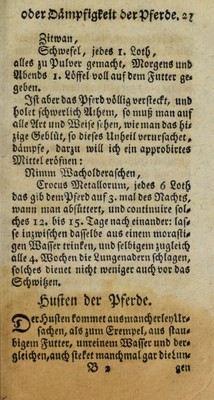 oder Dämpfigkeit der Pferde. 21
Zitwan,
Schwefel, jedes 1. Loth,
alles zu Pulver gemacht, Morgens und
Abends 1. Löffel voll auf dem Futter ge-
geben.
Ist aber das Pferd völlig versteckt, und
holet schwerlich Athem, so muß man auf
alle Art und Weise sehen, wie man das hi-
zige Geblüt, so dieses Unheil verursachet,
dämpfe, darzu will ich ein approbirtes
Mittel eröfnen:
Nimm Wacholderaschen,
Crocus Metallorum, jedes 6 Loth
das gib dem Pferd auf 3. mal des Nachts,
wann man abfüttert, und continuire sol-
ches 12. bis 15. Tage nach einander: las-
se inzwischen dasselbe aus einem morasti-
gen Wasser trinken, und selbigem zugleich
alle 4. Wochen die Lungenadern schlagen,
solches dienet nicht weniger auch vor das
Schwitzen.
Husten der Pferde.
Der Husten kommet aus mancherley Ur-
sachen, als zum Exempel, aus stau-
bigem Futter, unreinem Wasser und der-
gleichen, auch steket manchmal gar die Lun-
B 2 gen